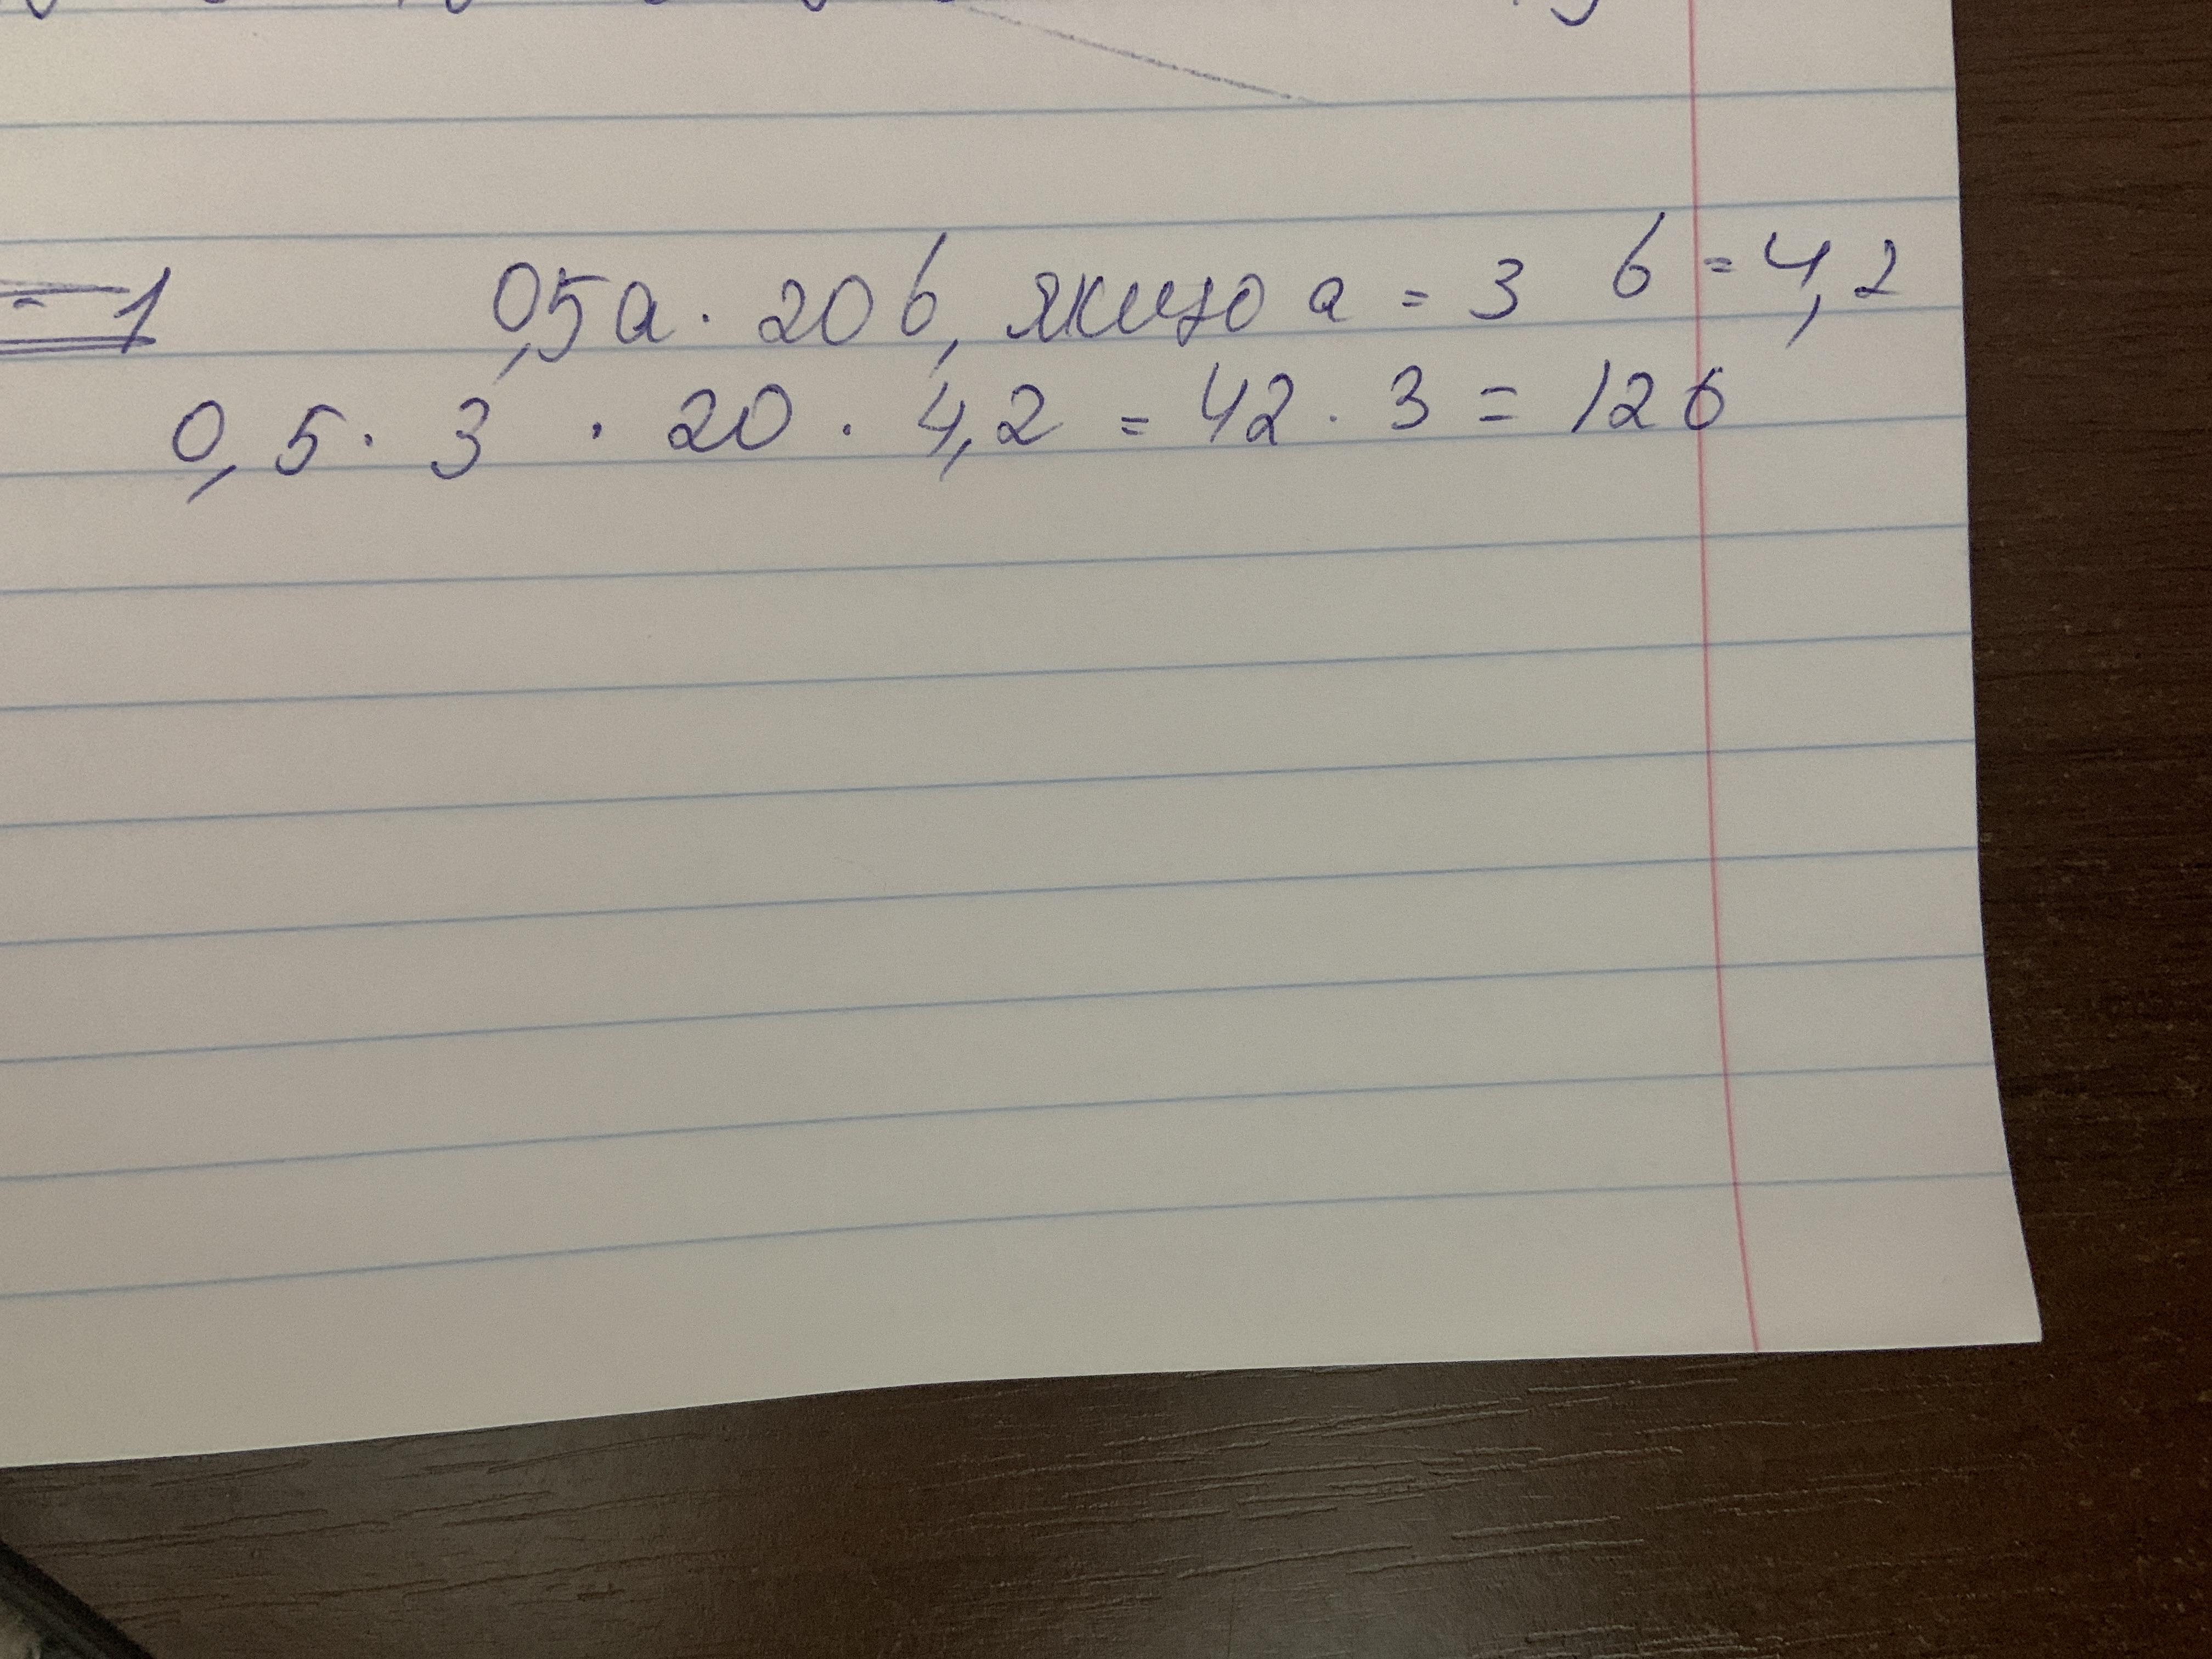 = 1
0,5a · 20b, якщо a = 3 b = 4,2
0,5 · 3 · 20 · 4,2 = 42 · 3 = 126